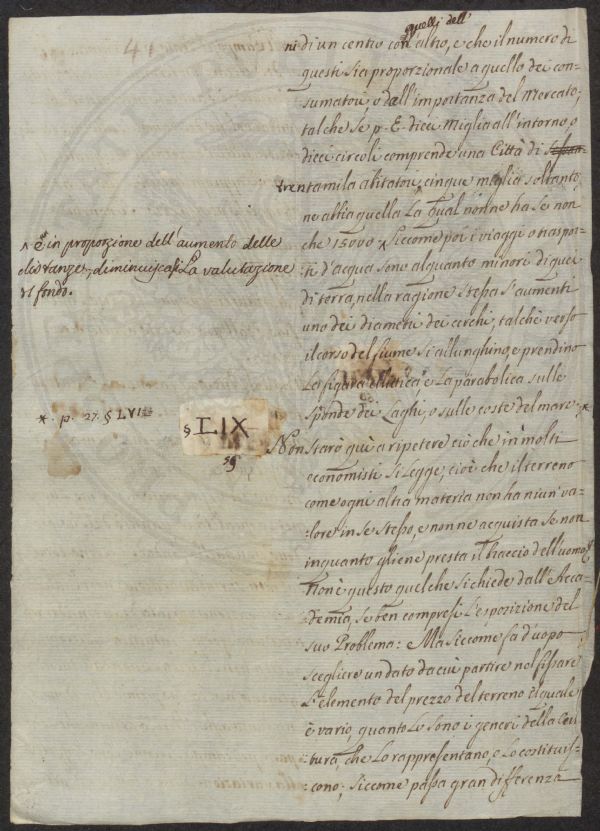 quelli dell'
ni di un centro con altro, e che il numero di
questi sia proporzionale a quello dei con-
sumatori, o dall'importanza del Mercato;
talche se p. E. dieci Miglia all'intorno, o
dieci circoli comprende una Città di
trentamila abitatori, cinque miglia soltanto
ne abbia quella la qual non ne ha se non
che 15000 Siccome poi i viaggi o traspor-
ti d'acqua sono alquanto minori di quei
di terra, nella ragione stessa s'aumenti
uno dei diametri dei cerchi, talchè verso
il corso del fiume si allunghino, e prendino
la figura elittica, e la parabolica sulle
sponde dei Laghi, o sulle coste del mare. *
^ e in proporzione dell'aumento delle
distanze, diminuiscasi la valutazione
del fondo.
*. p. 27. § LVI
§ LIX
59
Non starò quì a ripetere ciò che in molti
economisti si legge, cioè che il terreno
come ogni altra materia non ha niun va-
lore in se stesso, e non ne acquista se non
inquanto gliene presta il braccio dell'uomo
non è questo quel che si chiede dall'Acca-
demia, se ben compresi l'esposizione del
suo Problema: Ma siccome fa d'uopo
scegliere un dato da cui partire nel fissare
l'elemento del prezzo del terreno il quale
è vario, quanto lo sono i generi della Cul-
tura, che lo rappresentano, o lo costituis-
cono; siccome passa gran differenza